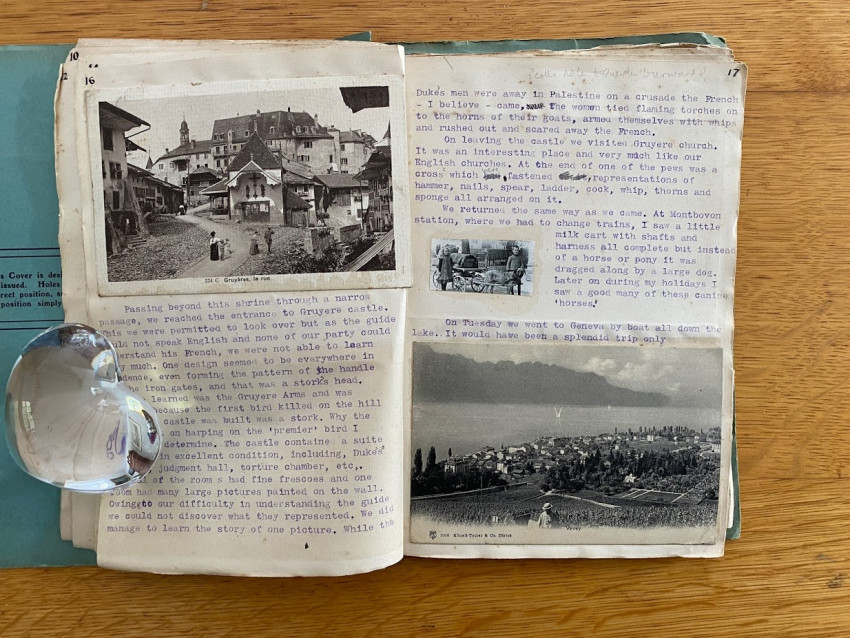 10
16
224 C. Gruyères, la rue
Passing beyond this shrine through a narrow
passage, we reached the entrance to Gruyere castle.
this we were permitted to look over but as the guide
could not speak English and none of our party could
erstand his French, we were not able to learn
y much. One design seemed to be everywhere in
dence, even forming the pattern of the handle
he iron gates, and that was a stork's head.
learned was the Gruyere Arms and was
because the first bird killed on the hill
castle was built was a stork. Why the
on harping on the 'premier' bird I
determine. The castle contained a suite
in excellent condition, including, Duke's
judgment hall, torture chamber, etc,.
of the room s had fine frescoes and one
room had many large pictures painted on the wall.
Owing to our difficulty in understanding the guide
we could not discover what they represented. We did
manage to learn the story of one picture. While the
s Cover is
issued. Holes
rrect position,
position simply
17
Duke's men were away in Palestine on a crusade the French
- I believe - came, the women tied flaming torches on
to the horns of their goats, armed themselves with whips
and rushed out and scared away the French.
On leaving the castle we visited Gruyere church.
It was an interesting place and very much like our
English churches. At the end of one of the pews was a
cross which were fastened representations of
hammer, nails, spear, ladder, cock, whip, thorns and
sponge all arranged on it.
We returned the same way as we came. At Montbovon
station, where we had to change trains, I saw a little
milk cart with shafts and
harness all complete but instead
of a horse or pony it was
dragged along by a large dog.
Later on during my holidays I
saw a good many of these canine
'horses.'
On Tuesday we went to Geneva by boat all down the
lake. It would have been a splendid trip only
Vevey